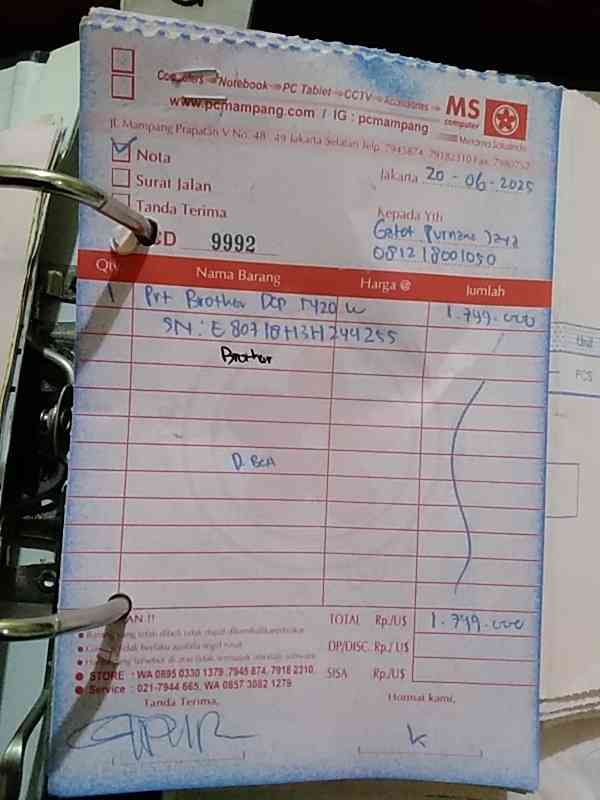 Computers Notebook PC Tablet CCTV Accessories
MS
computer
www.pcmampang.com / IG : pcmampang
Jl. Mampang Prapatan V No. 48 - 49 Jakarta Selatan Telp. 7945874, 79182310 Fax. 7980757
Nota
Jakarta 20 - 06 - 2025
Surat Jalan
Tanda Terima
Kepada Yth
Gatot Purnama Jaya
081218001050
CD 9992
Qty Nama Barang Harga @ Jumlah
1 Prt Brother DCP T420 W 1.799.000
SN : E80718H3H244255
Brother
D. BCA
TOTAL Rp./U$ 1.799.000
DP/DISC. Rp./U$
SISA Rp./U$
AN !!
Barang yang telah dibeli tidak dapat dikembalikan/ditukar
tidak berlaku apabila segel rusak
STORE : WA 0895 0330 1379 ,7945 874, 7918 2310,
Service : 021-7944 665, WA 0857 3082 1279
Tanda Terima,
Hormat kami,